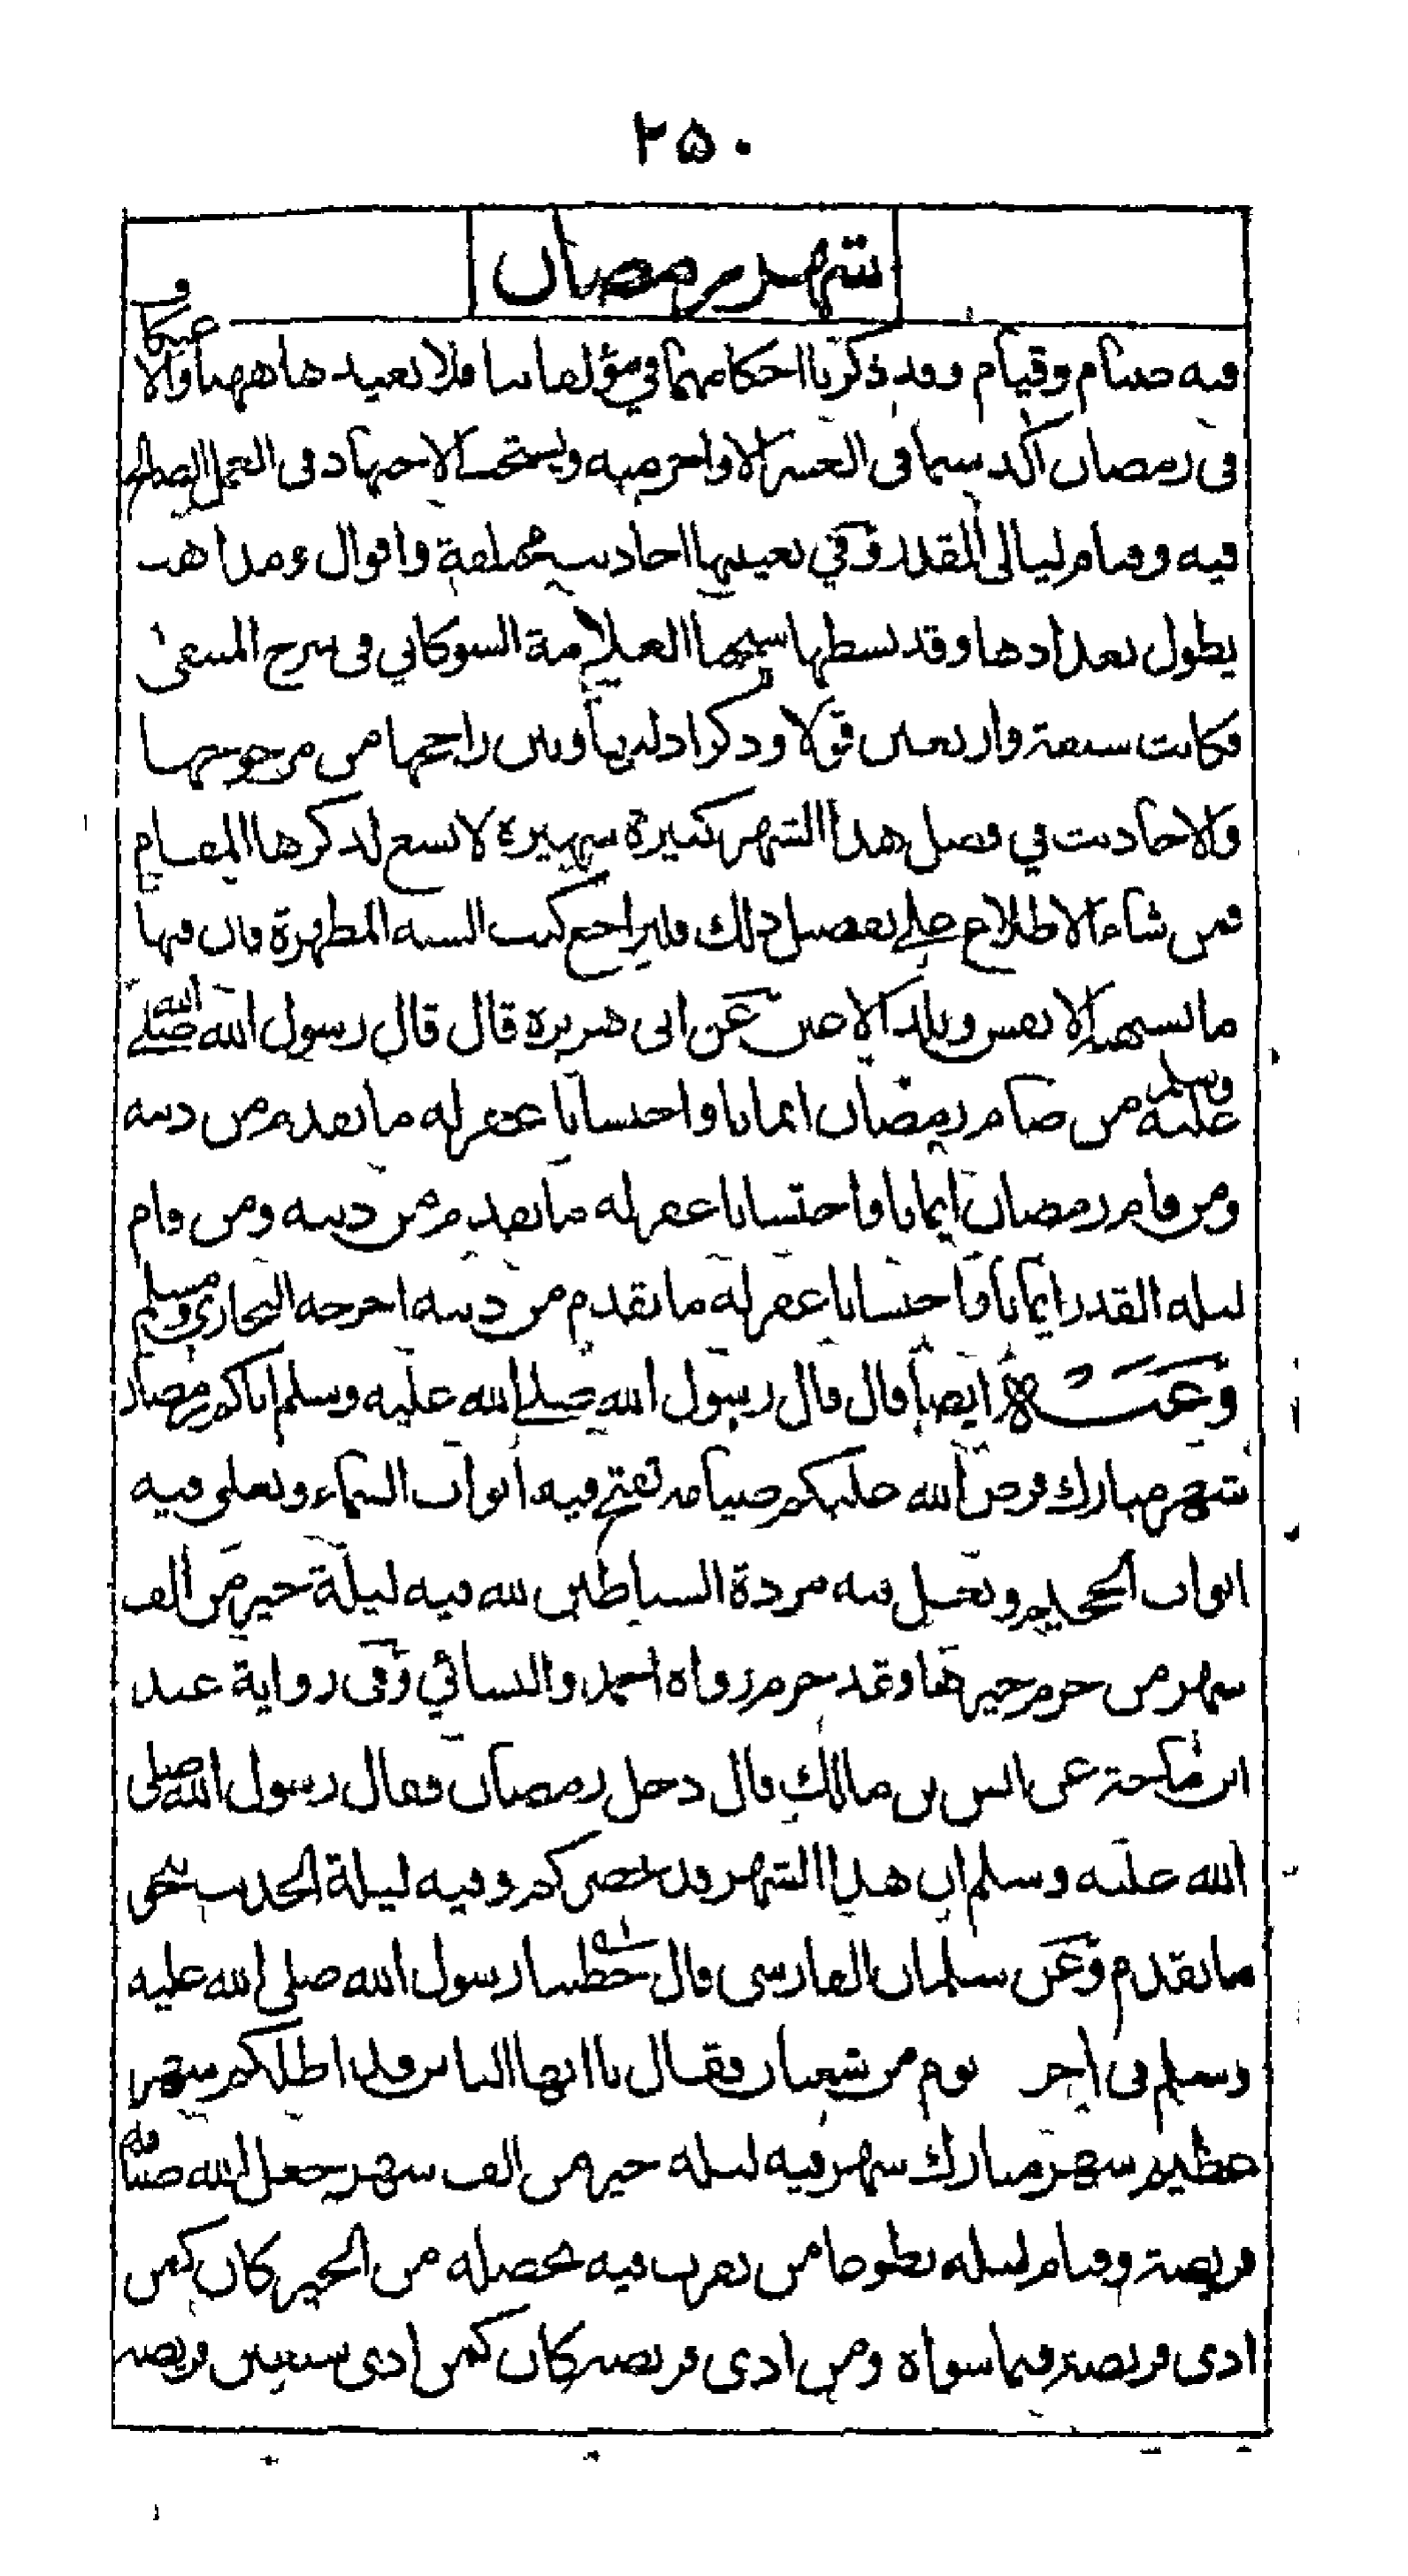 ٢٥٠
شهر رمضان
فيه صيام وقيام وقد ذكرنا احكامهما في مؤلفاتنا فلا نعيدها ههنا والاعتكاف
في رمضان آكد سيما في العشر الاواخر منه ويستحب الاجتهاد في العمل الصالح
فيه وقيام ليالي القدر وفي تعيينها احاديث مختلفة واقوال ومذاهب
يطول تعدادها وقد بسطها شيخنا العلامة الشوكاني في شرح المنتقى
فكانت سبعة واربعين قولا وذكر ادلتها وبين راجحها من مرجوحها
والاحاديث في فضل هذا الشهر كثيرة شهيرة لا يسع لذكرها المقام
فمن شاء الاطلاع على تفصيل ذلك فليراجع كتب السنة المطهرة فان فيها
ما تشتهيه الانفس وتلذ الاعين عن ابي هريرة قال قال رسول الله صلى الله
عليه وسلم من صام رمضان ايمانا واحتسابا غفر له ما تقدم من ذنبه
ومن قام رمضان ايمانا واحتسابا غفر له ما تقدم من ذنبه ومن قام
ليلة القدر ايمانا واحتسابا غفر له ما تقدم من ذنبه اخرجه البخاري ومسلم
وعنه ايضا قال قال رسول الله صلى الله عليه وسلم اتاكم رمضان
شهر مبارك فرض الله عليكم صيامه تفتح فيه ابواب السماء وتغلق فيه
ابواب الجحيم وتغل فيه مردة الشياطين لله فيه ليلة خير من الف
شهر من حرم خيرها وقد حرم رواه احمد والنسائي وفي رواية عند
ابن ماجة عن انس بن مالك قال دخل رمضان فقال رسول الله صلى
الله عليه وسلم ان هذا الشهر قد حضركم وفيه ليلة الحديث نحو
ما تقدم وعن سلمان الفارسي قال خطبنا رسول الله صلى الله عليه
وسلم في آخر يوم من شعبان فقال يا ايها الناس قد اظلكم شهر
عظيم شهر مبارك شهر فيه ليلة خير من الف شهر جعل الله صيامه
فريضة وقيام ليله تطوعا من تقرب فيه بخصلة من الخير كان كمن
ادى فريضة فيما سواه ومن ادى فريضة كان كمن ادى سبعين فريضة